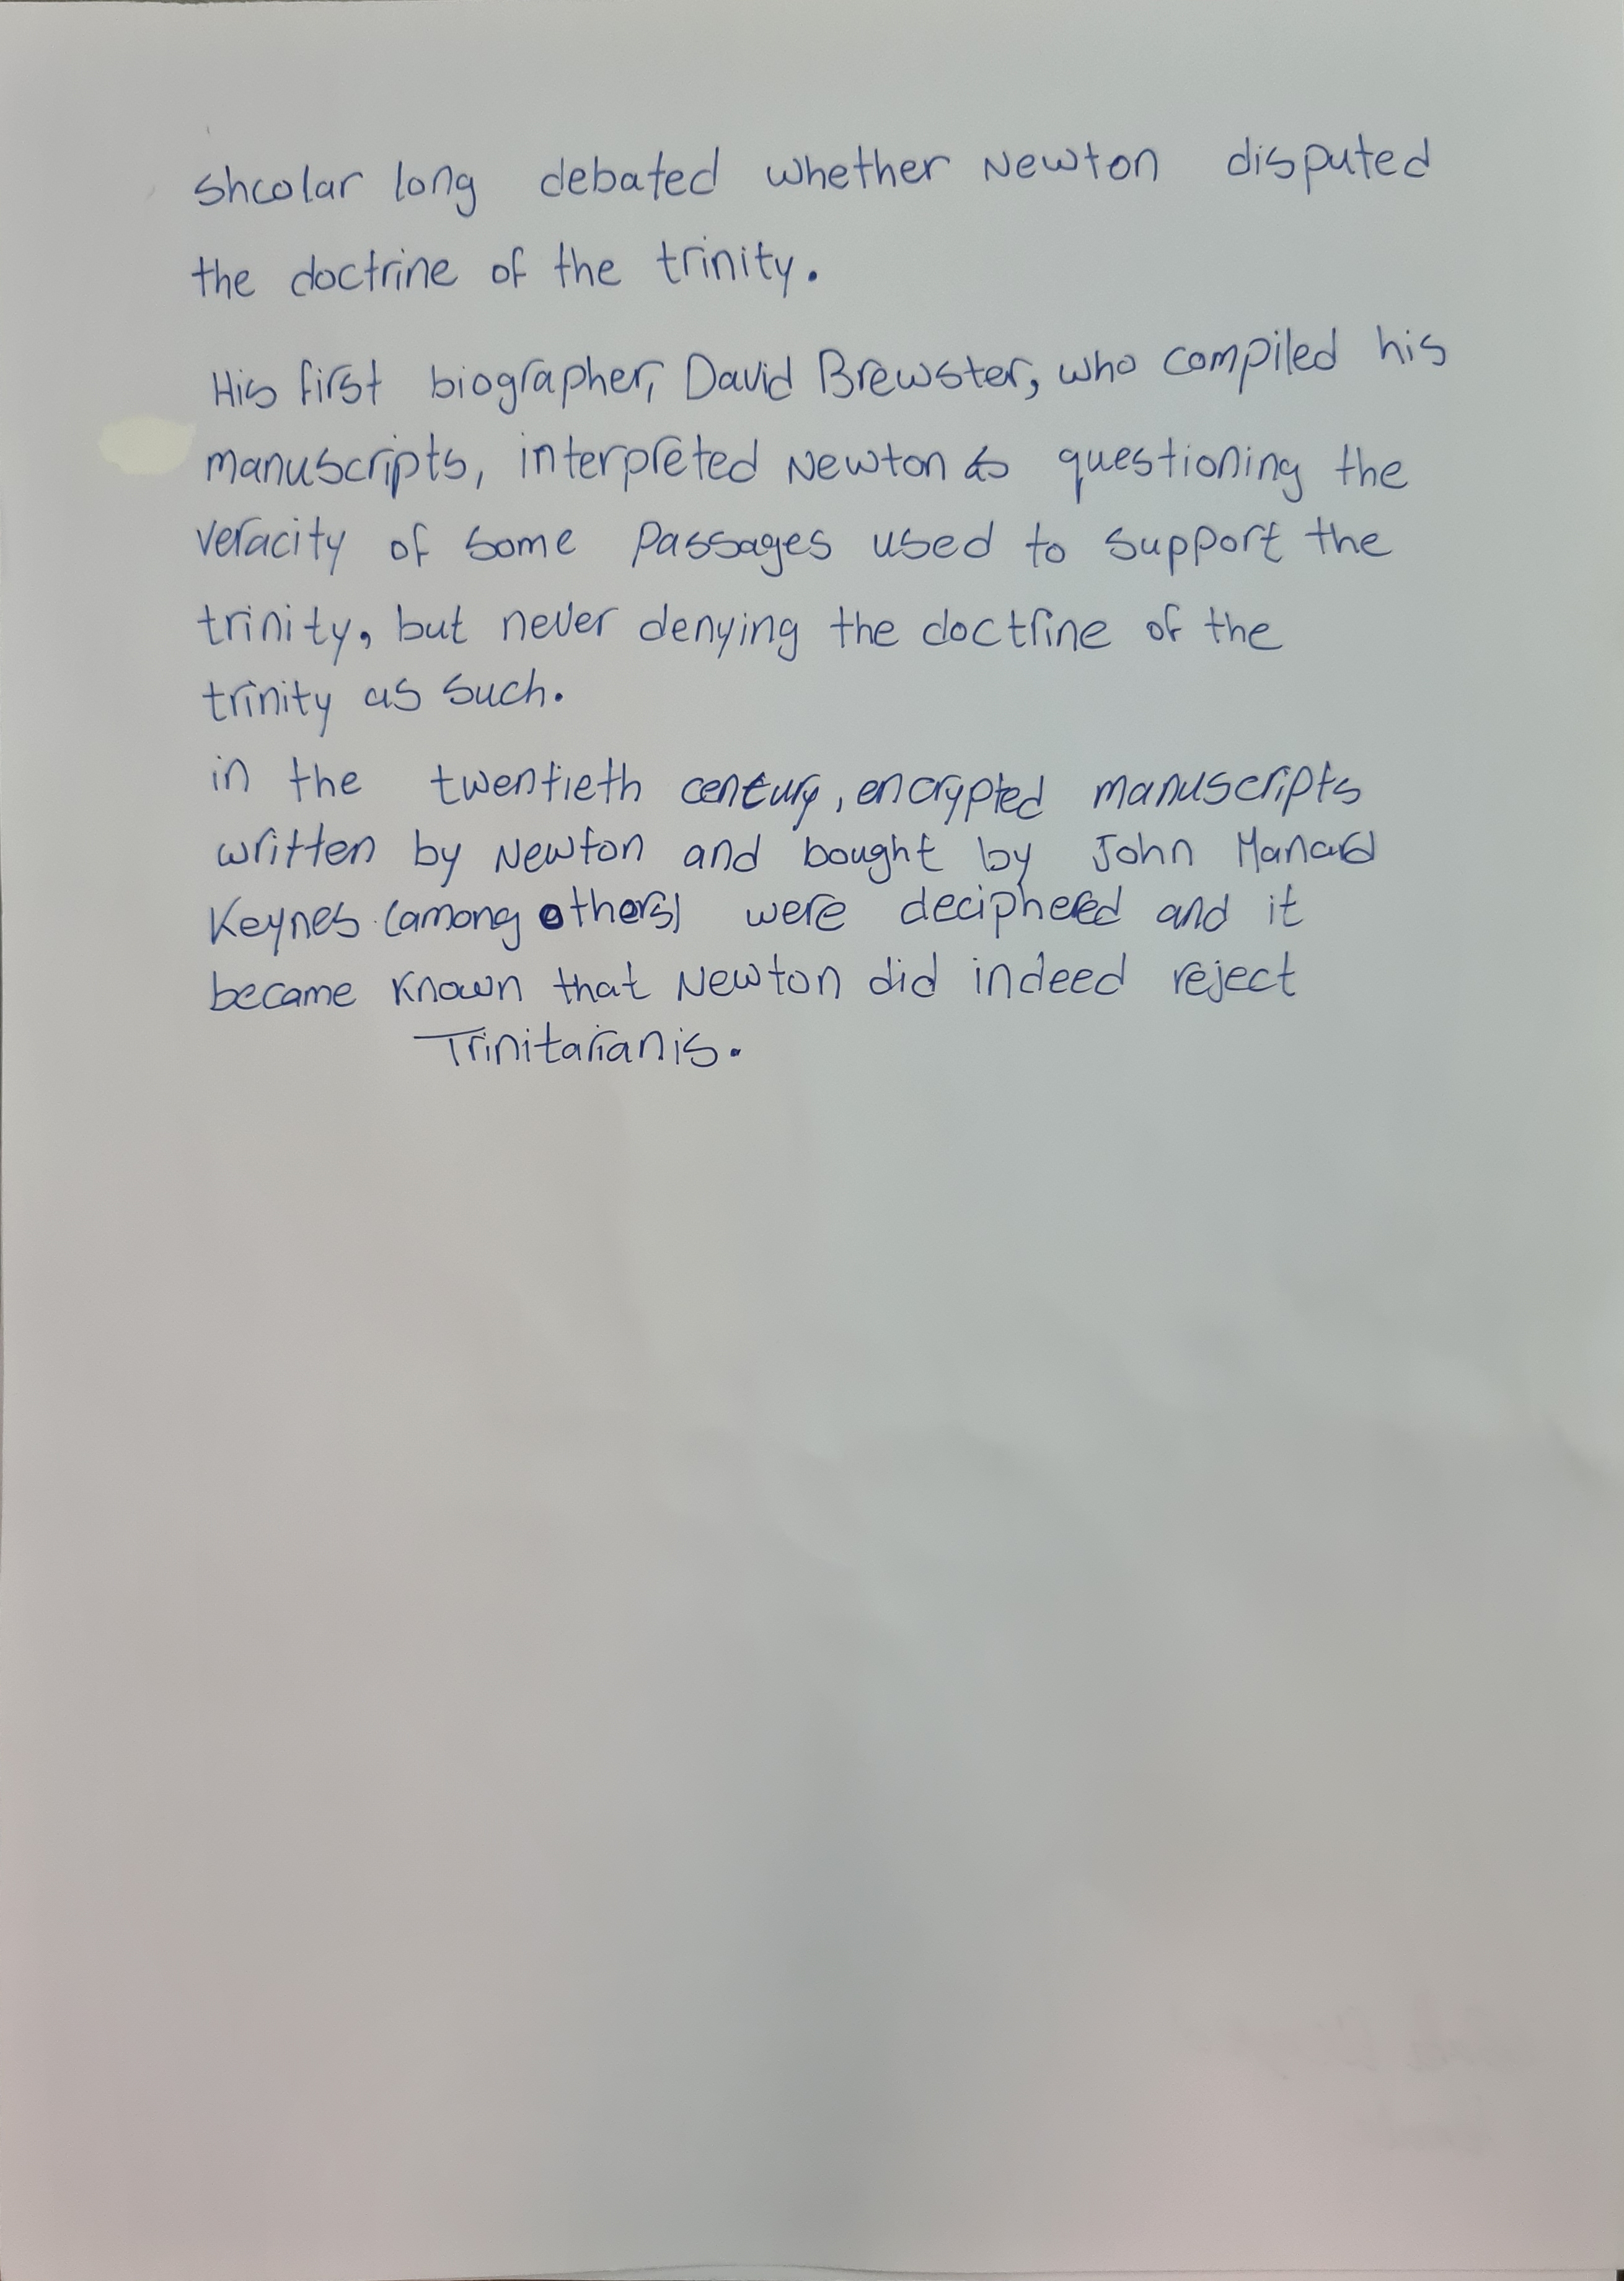 shcolar long debated whether Newton disputed
the doctrine of the trinity.
His first biographer, David Brewster, who compiled his
manuscripts, interpreted Newton as questioning the
veracity of some passages used to support the
trinity, but never denying the doctrine of the
trinity as such.
in the twentieth century, encrypted manuscripts
written by Newton and bought by John Manard
Keynes (among others) were deciphered and it
became known that Newton did indeed reject
Trinitarianis.